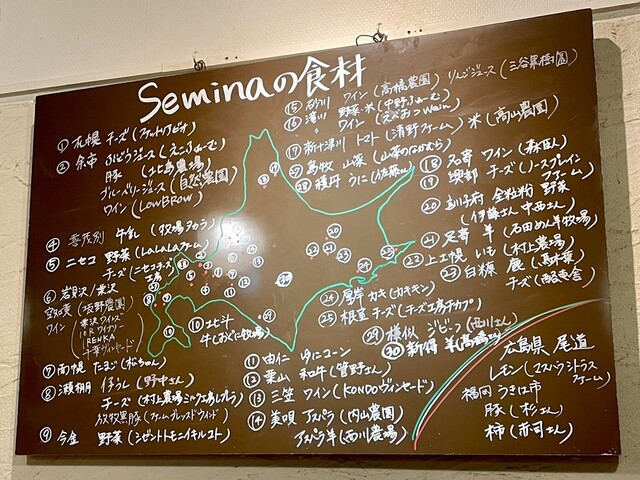 Seminaの食材
① 札幌 チーズ(ファットリアビオ)
② 余市 ぶどうジュース(えこふぁーむ)
豚(北島農場)
ブルーベリージュース(自然農園)
ワイン(LOWBROW)
④ 喜茂別 牛乳(牧場タカラ)
⑤ ニセコ 野菜(LaLaLaファーム)
チーズ(ニセコチーズ工房)
⑥ 岩見沢/栗沢
野菜(坂野農園)
ワイン
栗沢ワインズ
10Rワイナリー
RENKA
⑦ 南幌 たまご(松ちゃん)
⑧ 瀬棚 仔うし(野中さん)
チーズ(村上農場ミルク工房レプレラ)
放牧黒豚(ファームブレッスドウインド)
⑨ 今金 野菜(シゼントトモニイキルコト)
⑩ 北斗
牛(おぐに牧場)
⑪ 由仁 ゆにコーン
⑫ 栗山 和牛(菅野さん)
⑬ 三笠 ワイン(KONDOヴィンヤード)
⑭ 美唄 アスパラ(内山農園)
アスパラ羊(西川農場)
⑮ 砂川 ワイン(高橋農園) りんごジュース(三谷果樹園)
⑯ 滝川 野菜・米(中野ふぁーむ)
〃 ワイン(えべおつwain)
⑰ 新十津川 トマト(清野ファーム) 米(高山農園)
㉗ 島牧 山菜(山菜のなかむら)
㉘ 積丹 うに(佐藤さん)
⑱ 名寄 ワイン(森臣人)
⑲ 興部 チーズ(ノースプレインファーム)
⑳ 訓子府 全粒粉 野菜
(伊藤さん 中西さん)
㉑ 足寄 羊(石田めん羊牧場)
㉒ 上士幌 いも(村上農場)
㉓ 白糠 鹿(馬木葉)
チーズ(酪恵舎)
㉔ 厚岸 カキ(カキキン)
㉕ 根室 チーズ(チーズ工房チカプ)
㉙ 様似 ジビーフ(西川さん)
㉚ 新得 羊
広島県 尾道
レモン(シトラスファーム)
福岡 うきは市
豚(松さん)
柿(赤司さん)